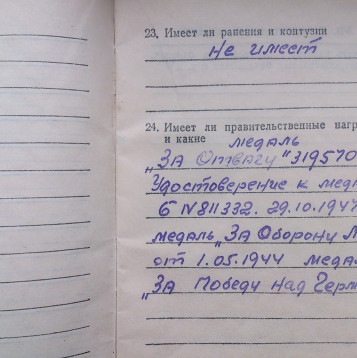 23. Имеет ли ранения и контузии
не имеет
24. Имеет ли правительственные наг
и какие медаль
„За Отвагу" 319570
Удостоверение к меда
б N 811332. 29.10.194
медаль „За Оборону
от 1.05.1944 медал
„За Победу над Герм